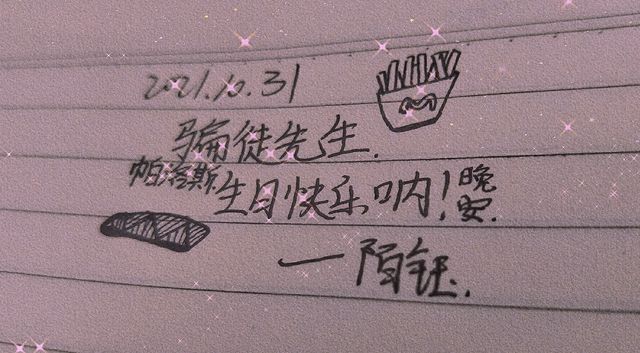 2021.10.31
骗徒先生.
帕洛斯生日快乐呐!晚安.
——陌钰.